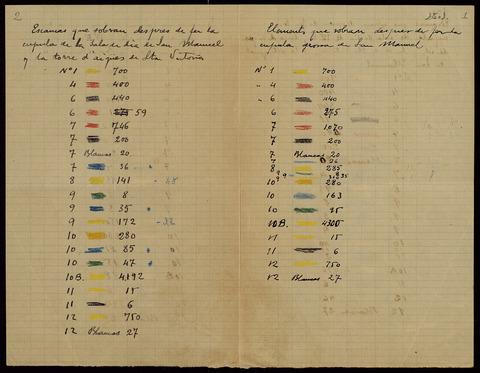 2
Escamas que sobran despres de fer la
cupula de la Sala de dia de San Manuel
y la torre d'aigues de Sta Victoria
Nº 1 700
4 400
6 440
6 59
7 746
7 200
7 Blancas 20
7 36
8 141 - 48
9 8
9 35
9 172 - 32
10 280
10 85
10 47
10 B. 4.192
11 15
11 6
12 750
12 Blancas 27
1
Elements que sobran despres de fer la
cupula grossa de San Manuel
Nº 1 700
" 4 400
" 6 440
6 275
7 1020
7 200
7 Blancas 20
7 36
8 285
9
10 280
10 163
10
10 B. 4300
11 15
11 6
12 750
12 Blancas 27